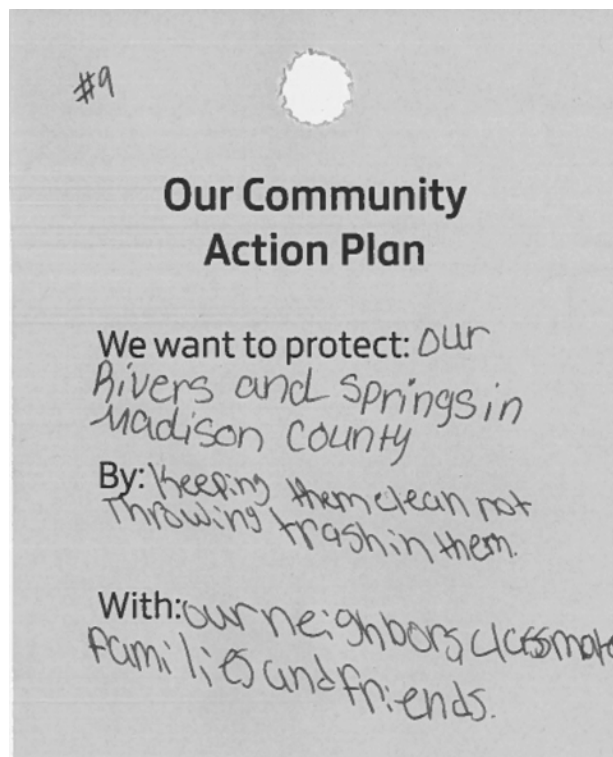 #9
Our Community
Action Plan
We want to protect: our
Rivers and springs in
Madison County
By: Keeping them clean not
Throwing trash in them.
With: our neighbors, classmate
families and friends.